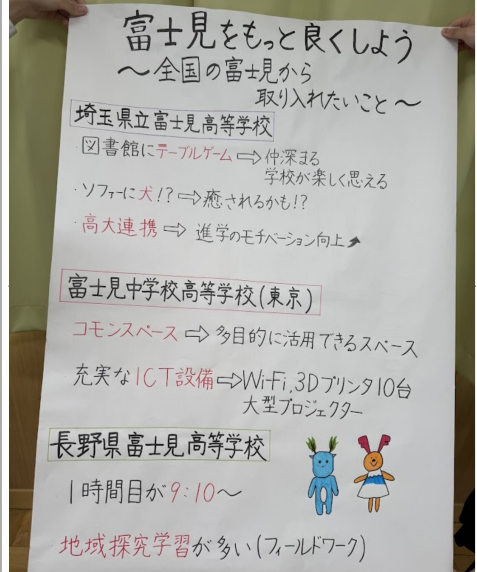 富士見をもっと良くしよう
～全国の富士見から
取り入れたいこと～
埼玉県立富士見高等学校
・図書館にテーブルゲーム⇨仲深まる
学校が楽しく思える
・ソファーに犬!?⇨癒されるかも!?
・高大連携⇨進学のモチベーション向上
富士見中学校高等学校(東京)
コモンスペース⇨多目的に活用できるスペース
充実なICT設備⇨Wi-Fi,3Dプリンタ10台
大型プロジェクター
長野県富士見高等学校
1時間目が9:10～
地域探究学習が多い(フィールドワーク)